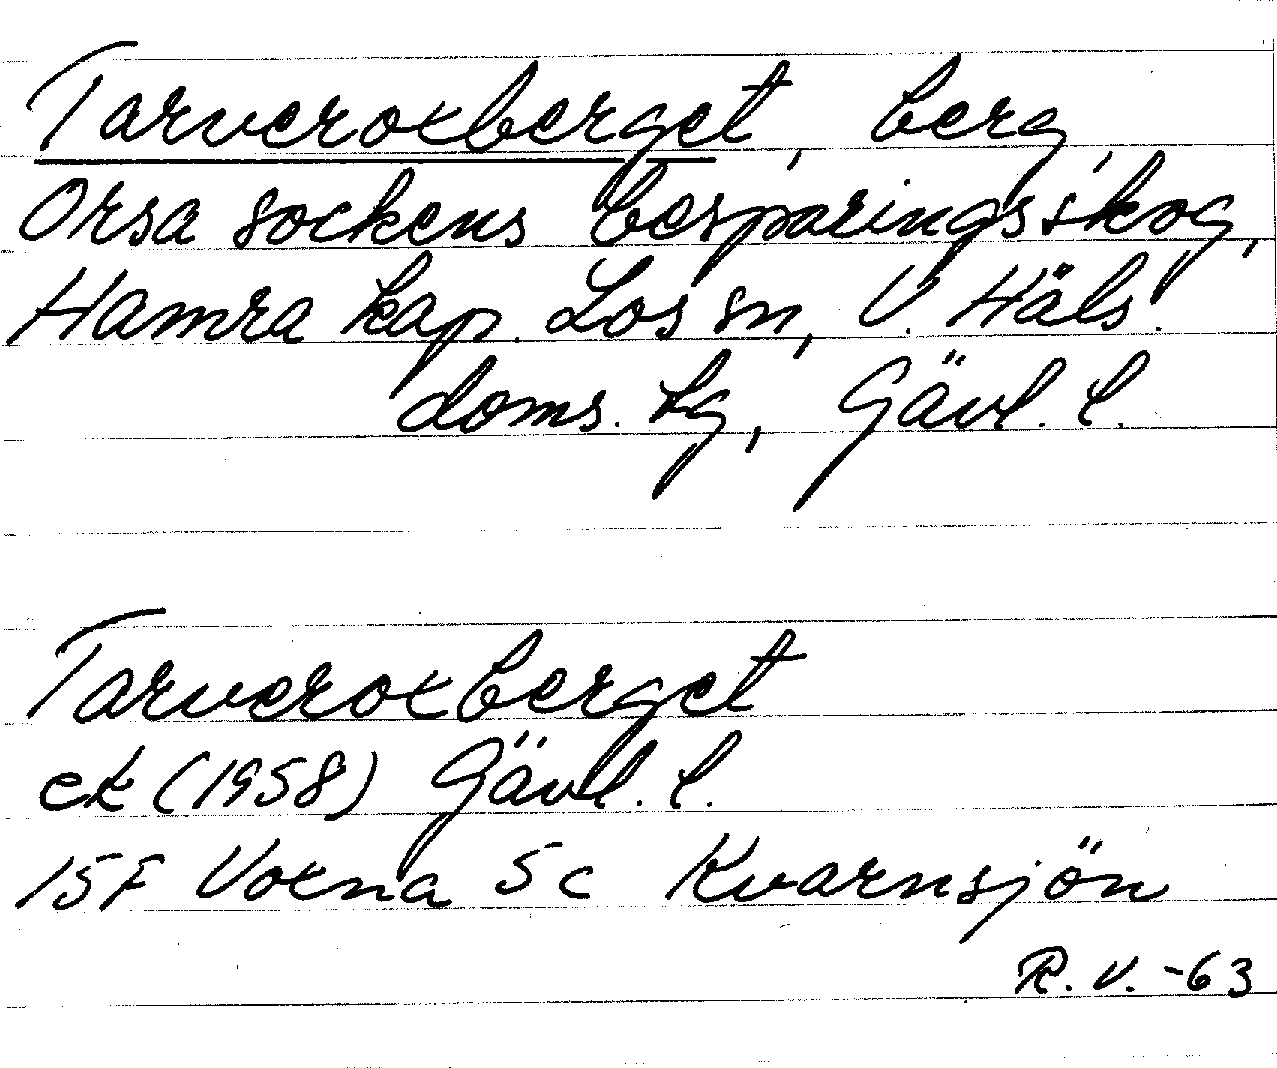 Tarveroxberget, berg,
Orsa sockens besparingsskog,
Hamra kap. Los sn, V. Häls.
doms. lg, Gävl. l.
Tarveroxberget
ek (1958) Gävl. l.
15F Voxna 5c Kvarnsjön
R. V. -63